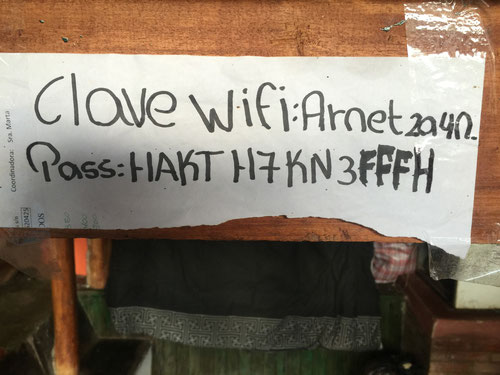 Clave Wifi: Arnet2a4n.
Pass: HAKTH7KN3FFFH
Coordinadora: Sra. Marta